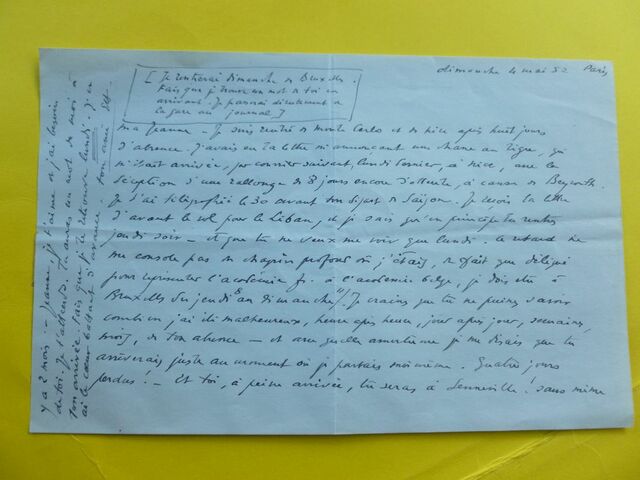 dimanche 4 mai 52 Paris
[ Je rentrerai dimanche de Bruxelles.
Fais que je trouve un mot de toi en
arrivant. Je passerai directement de
la gare au journal ]
Ma Jeanne - Je suis rentré de Monte Carlo et de Nice après huit jours
d'absence. J'avais eu ta lettre m'annonçant une chasse au tigre, qui
m'était arrivée, par courrier suivant, lundi dernier, à Nice, avec la
déception d'une rallonge de 8 jours encore d'attente, à cause de Beyrouth.
Je t'ai télégraphié le 30 avant ton départ de Saïgon. Je reçois ta lettre
d'avant le vol pour le Liban, et je sais qu'en principe tu rentres
jeudi soir - et que tu ne veux me voir que lundi. Le retard ne
me console pas du chagrin profond où j'étais, du fait que délégué
pour représenter l'académie fr. à l'académie belge, je dois être à
Bruxelles du jeudi 8 au dimanche 11! Je crains que tu ne puisses savoir
combien j'ai été malheureux, heure après heure, jour après jour, semaines,
mois, de ton absence - et avec quelle amertume je me disais que tu
arriverais juste au moment où je partais moi même. Quatre jours
perdus! - Et toi, à peine arrivée, tu seras à Senneville! sans même
y a 2 mois - Jeanne, je t'aime et j'ai besoin
de toi. Je t'attends. Tu auras un mot de moi à
ton arrivée. Fais que je te retrouve lundi. J'en
ai le cœur battant d'avance. ton ami